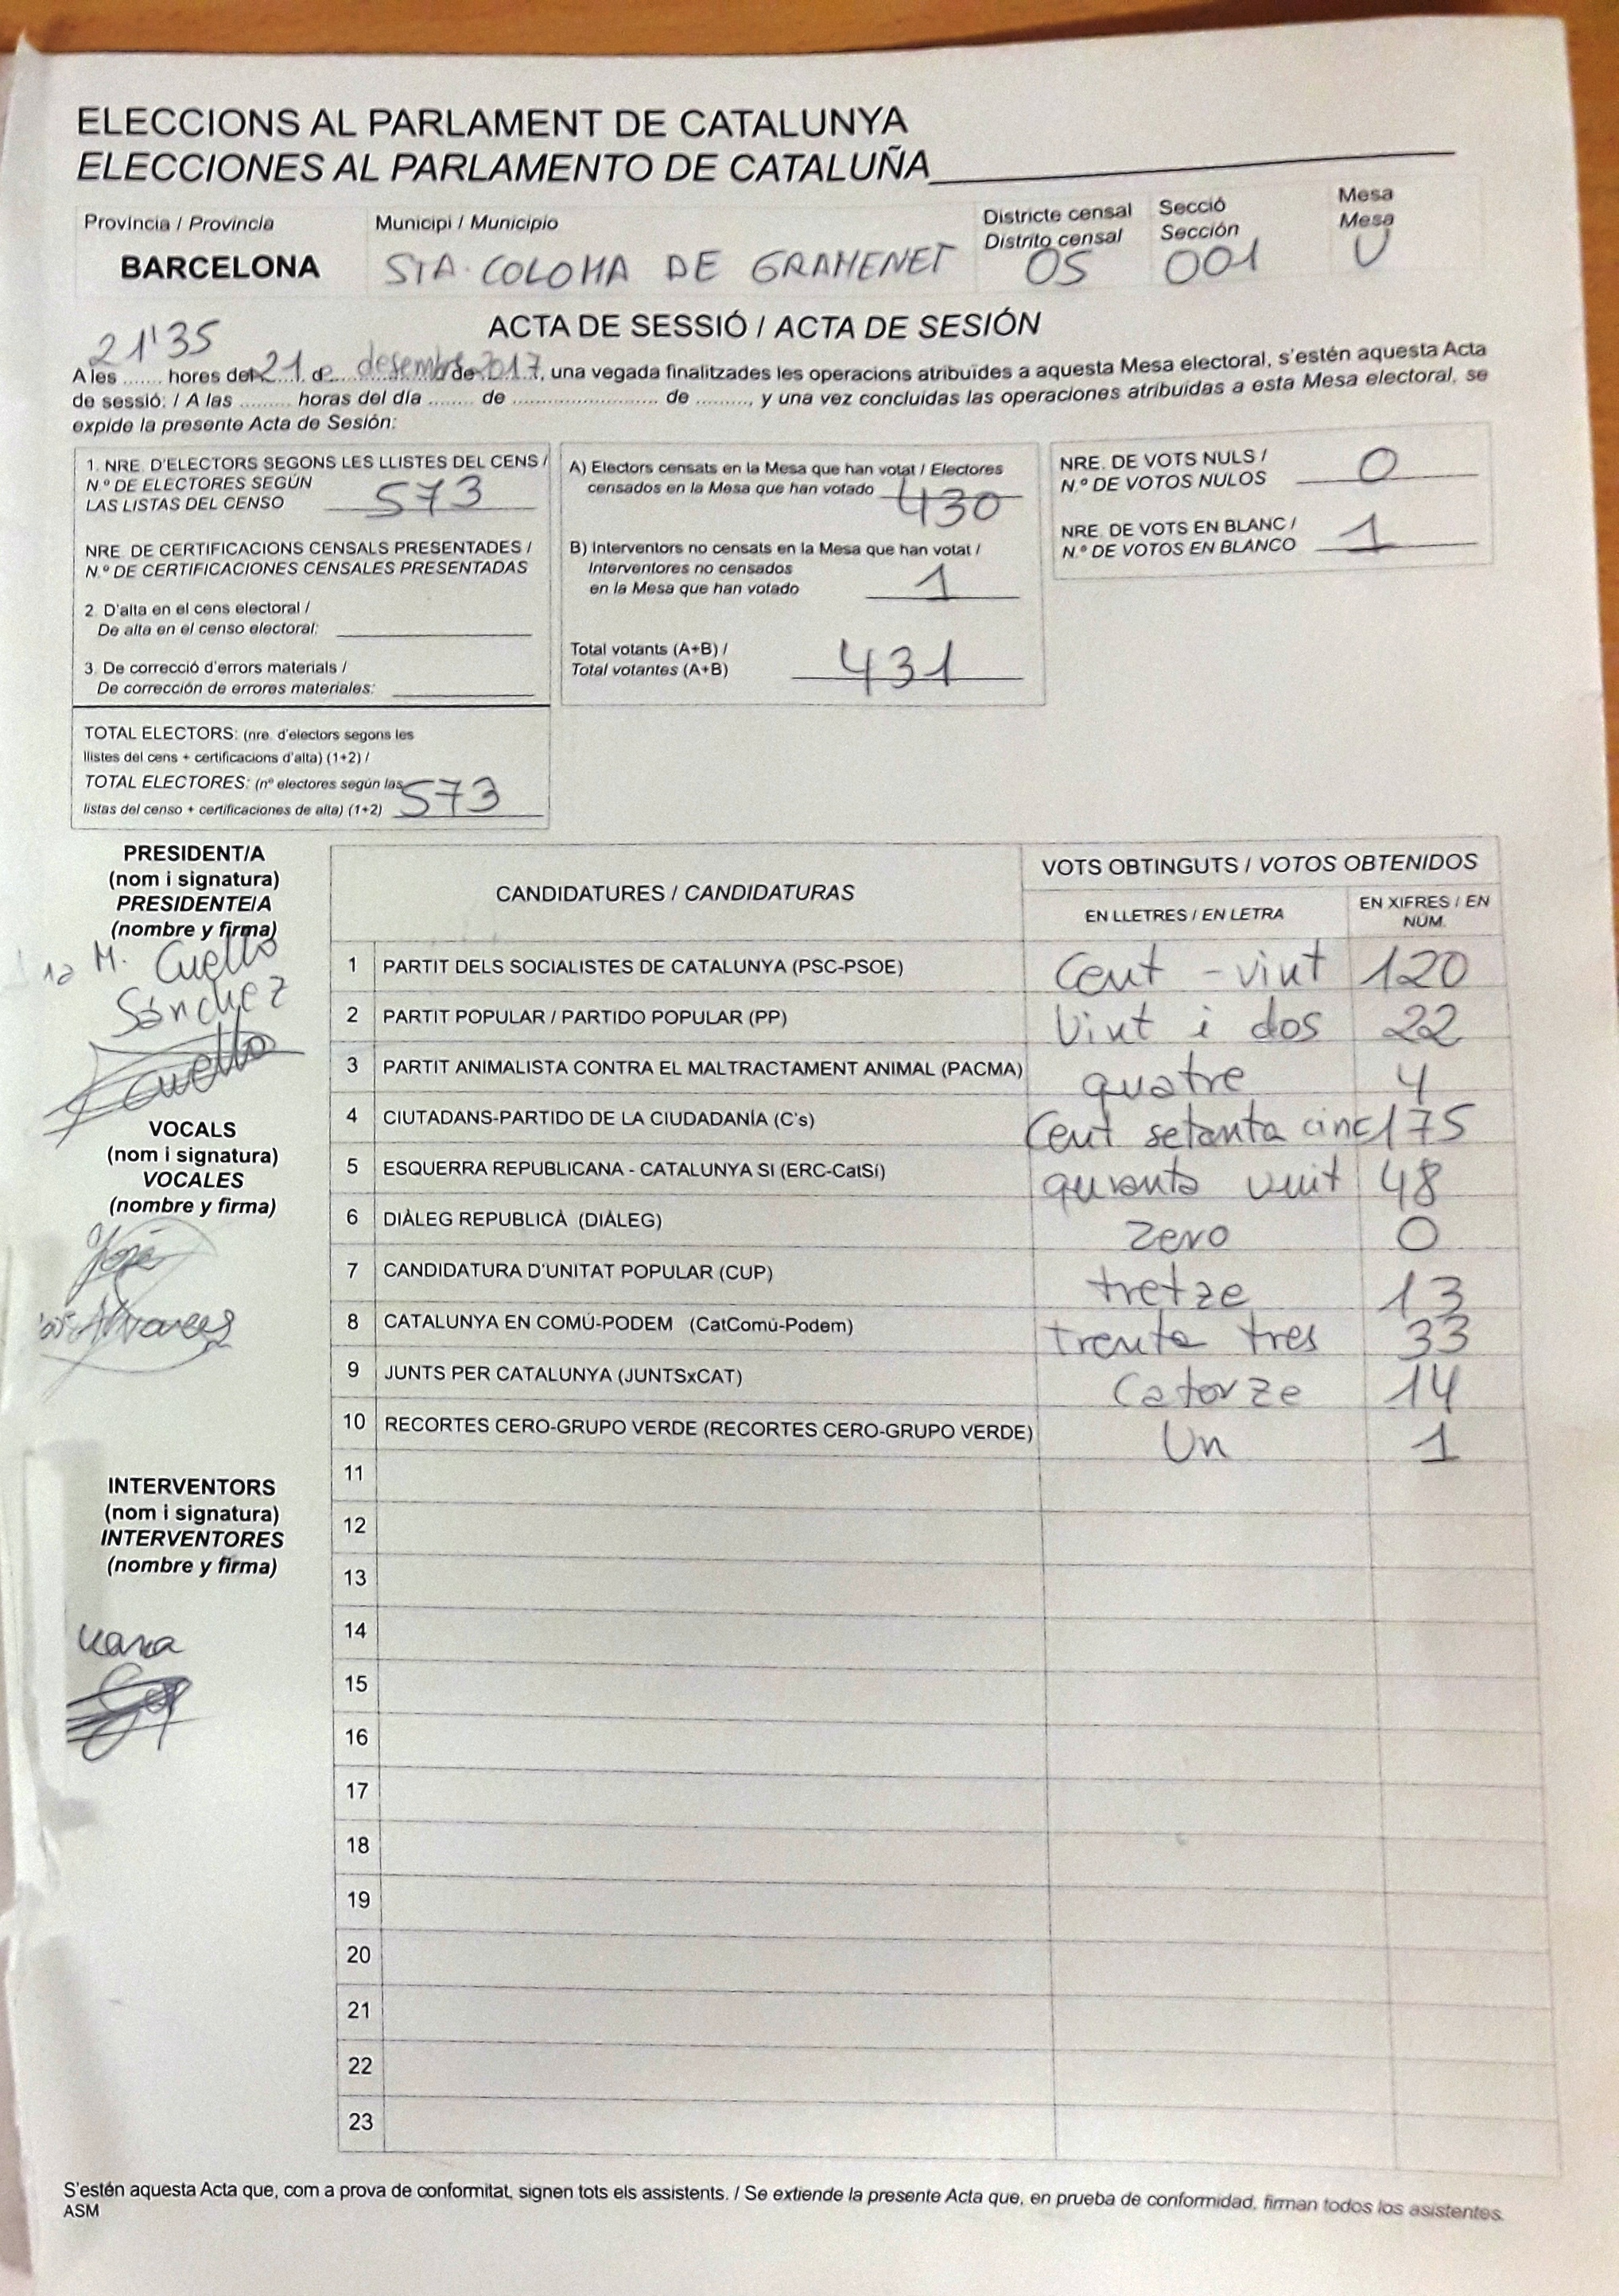 ELECCIONS AL PARLAMENT DE CATALUNYA
ELECCIONES AL PARLAMENTO DE CATALUÑA
Província / Provincia
BARCELONA
Municipi / Municipio
STA. COLOMA DE GRAMENET
Districte censal
Distrito censal
05
Secció
Sección
001
Mesa
Mesa
U
ACTA DE SESSIÓ / ACTA DE SESIÓN
21'35
A les ....... hores del 21 de desembre de 2017, una vegada finalitzades les operacions atribuïdes a aquesta Mesa electoral, s'estén aquesta Acta
de sessió: / A las ......... horas del día ........ de ........................ de ........., y una vez concluidas las operaciones atribuidas a esta Mesa electoral, se
expide la presente Acta de Sesión:
1. NRE. D'ELECTORS SEGONS LES LLISTES DEL CENS /
N.º DE ELECTORES SEGÚN
LAS LISTAS DEL CENSO 573
NRE. DE CERTIFICACIONS CENSALS PRESENTADES /
N.º DE CERTIFICACIONES CENSALES PRESENTADAS
2. D'alta en el cens electoral /
De alta en el censo electoral:
3. De correcció d'errors materials /
De corrección de errores materiales:
TOTAL ELECTORS: (nre. d'electors segons les
llistes del cens + certificacions d'alta) (1+2) /
TOTAL ELECTORES: (nº electores según las
listas del censo + certificaciones de alta) (1+2) 573
A) Electors censats en la Mesa que han votat / Electores
censados en la Mesa que han votado 430
B) Interventors no censats en la Mesa que han votat /
Interventores no censados
en la Mesa que han votado 1
Total votants (A+B) /
Total votantes (A+B) 431
NRE. DE VOTS NULS /
N.º DE VOTOS NULOS 0
NRE. DE VOTS EN BLANC /
N.º DE VOTOS EN BLANCO 1
PRESIDENT/A
(nom i signatura)
PRESIDENTE/A
(nombre y firma)
M. Cuello
Sánchez
Cuello
VOCALS
(nom i signatura)
VOCALES
(nombre y firma)
José
INTERVENTORS
(nom i signatura)
INTERVENTORES
(nombre y firma)
CANDIDATURES / CANDIDATURAS
VOTS OBTINGUTS / VOTOS OBTENIDOS
EN LLETRES / EN LETRA
EN XIFRES / EN
NÚM.
1 PARTIT DELS SOCIALISTES DE CATALUNYA (PSC-PSOE) Cent - vint 120
2 PARTIT POPULAR / PARTIDO POPULAR (PP) Vint i dos 22
3 PARTIT ANIMALISTA CONTRA EL MALTRACTAMENT ANIMAL (PACMA) quatre 4
4 CIUTADANS-PARTIDO DE LA CIUDADANÍA (C's) Cent setanta cinc 175
5 ESQUERRA REPUBLICANA - CATALUNYA SI (ERC-CatSí) quranta vuit 48
6 DIÀLEG REPUBLICÀ (DIÀLEG) zero 0
7 CANDIDATURA D'UNITAT POPULAR (CUP) tretze 13
8 CATALUNYA EN COMÚ-PODEM (CatComú-Podem) trenta tres 33
9 JUNTS PER CATALUNYA (JUNTSxCAT) Catorze 14
10 RECORTES CERO-GRUPO VERDE (RECORTES CERO-GRUPO VERDE) Un 1
11
12
13
14
15
16
17
18
19
20
21
22
23
S'estén aquesta Acta que, com a prova de conformitat, signen tots els assistents. / Se extiende la presente Acta que, en prueba de conformidad, firman todos los asistentes.
ASM